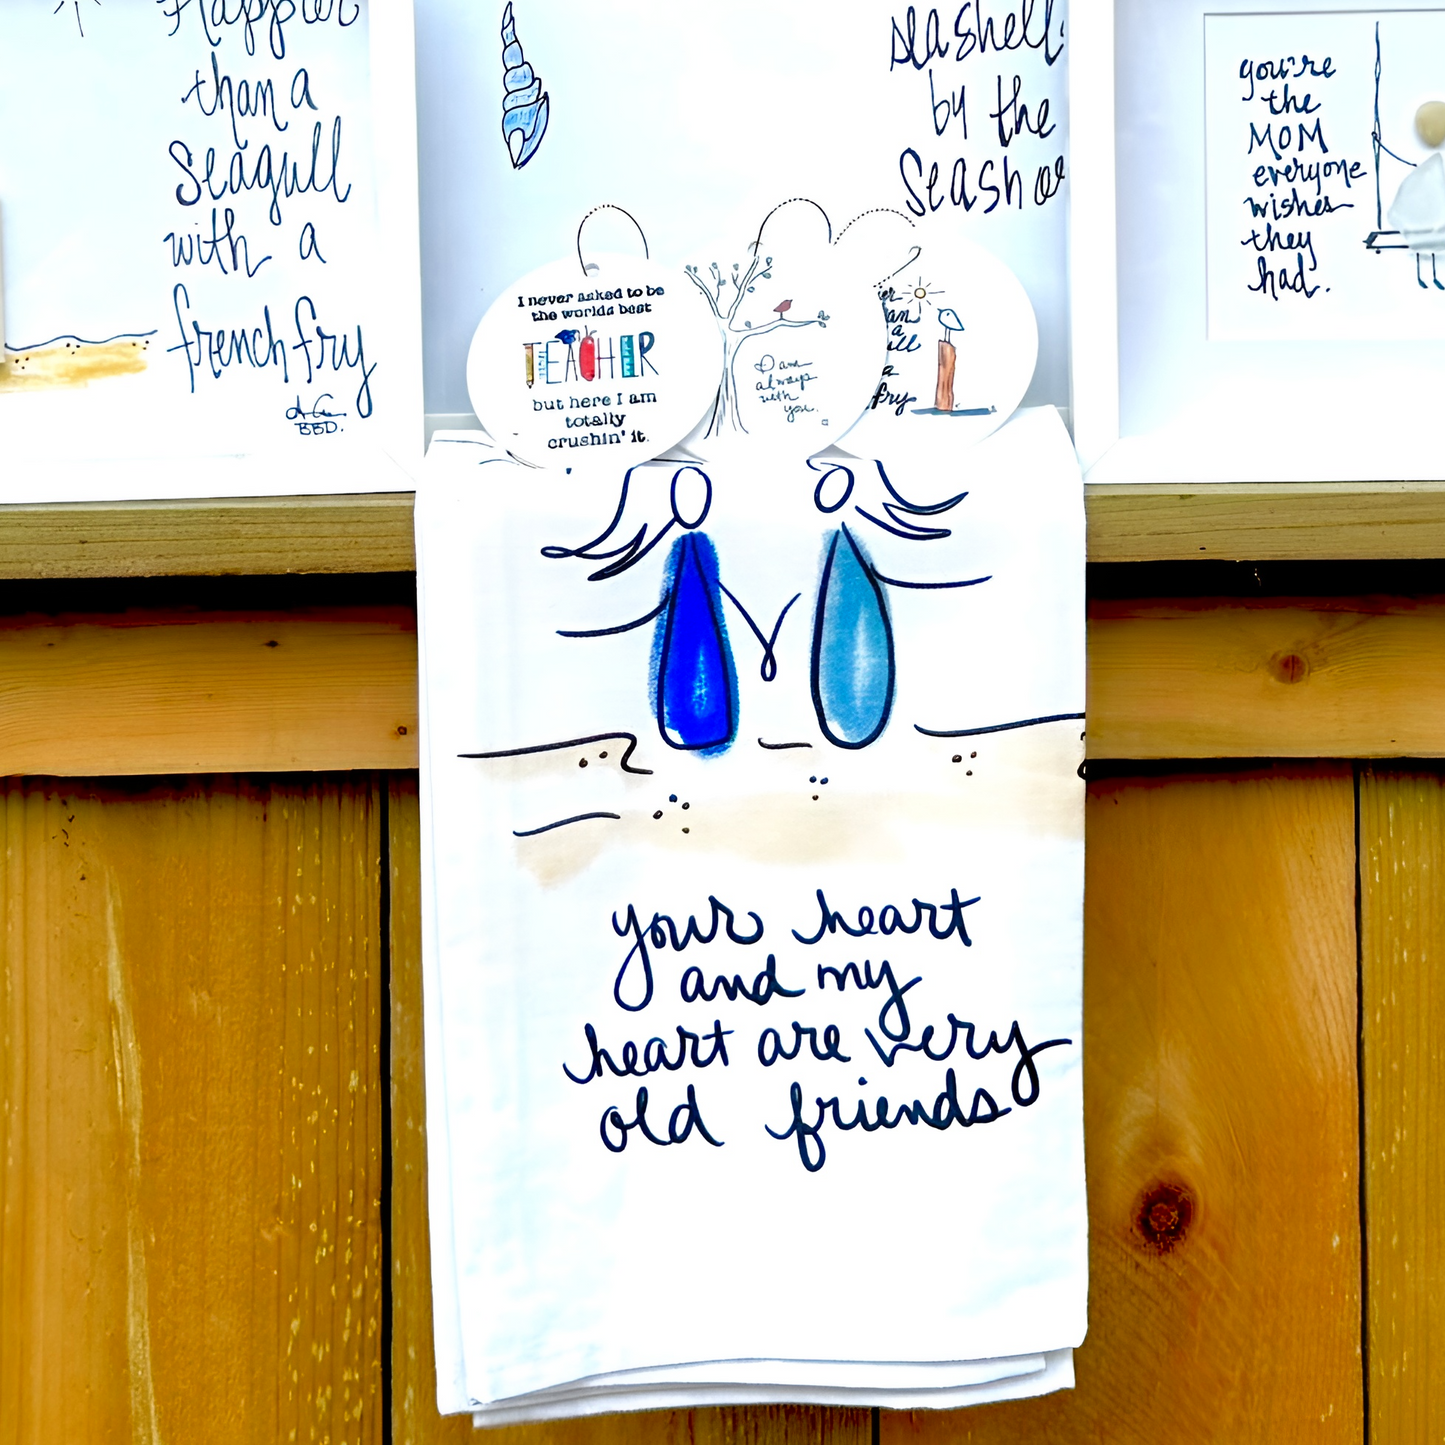 Happier
than a
Seagull
with a
french fry
BBD.
seashells
by the
Seashore
you're
the
MOM
everyone
wishes
they
had.
I never asked to be
the worlds best
TEACHER
but here I am
totally
crushin' it.
I am
always
with
you.
an
a
ill
a
fry
your heart
and my
heart are very
old friends